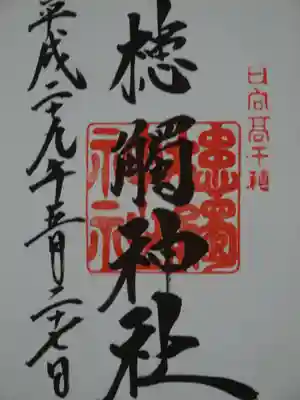 日向髙千穂
槵觸神社
平成二十九年五月二十七日